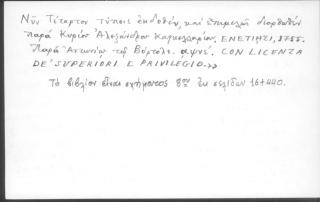 Νῦν Τέταρτον τύποις ἐκδοθέν, καὶ ἐπιμελῶς διορθωθέν
παρὰ Κυρίου Ἀλεξάνδρου Καγκελλαρίου. ΕΝΕΤΙΗΣΙ, 1755.
Παρὰ Ἀντωνίῳ τῷ Βόρτολι. αψνέ. CON LICENZA
DE' SUPERIORI E PRIVILEGIO.»
Τὸ βιβλίον εἶναι σχήματος 8ον ἐκ σελίδων 16+440.